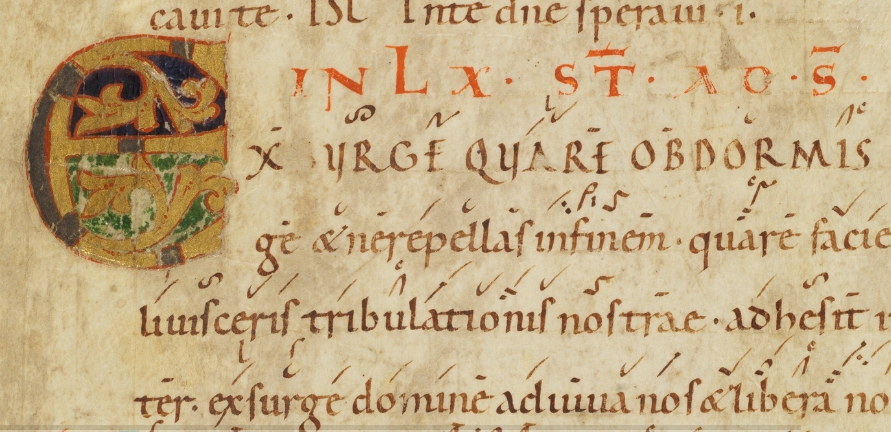 cauite · Ps Inte dne speraui · i ·
IN LX · ST · AD · S ·
EXSURGE QUARE OBDORMIS
ge & ne repellas in finem · quare facie
liuisceris tribulationis nostrae · adhesit
ter · exsurge domine adiuua nos & libera no